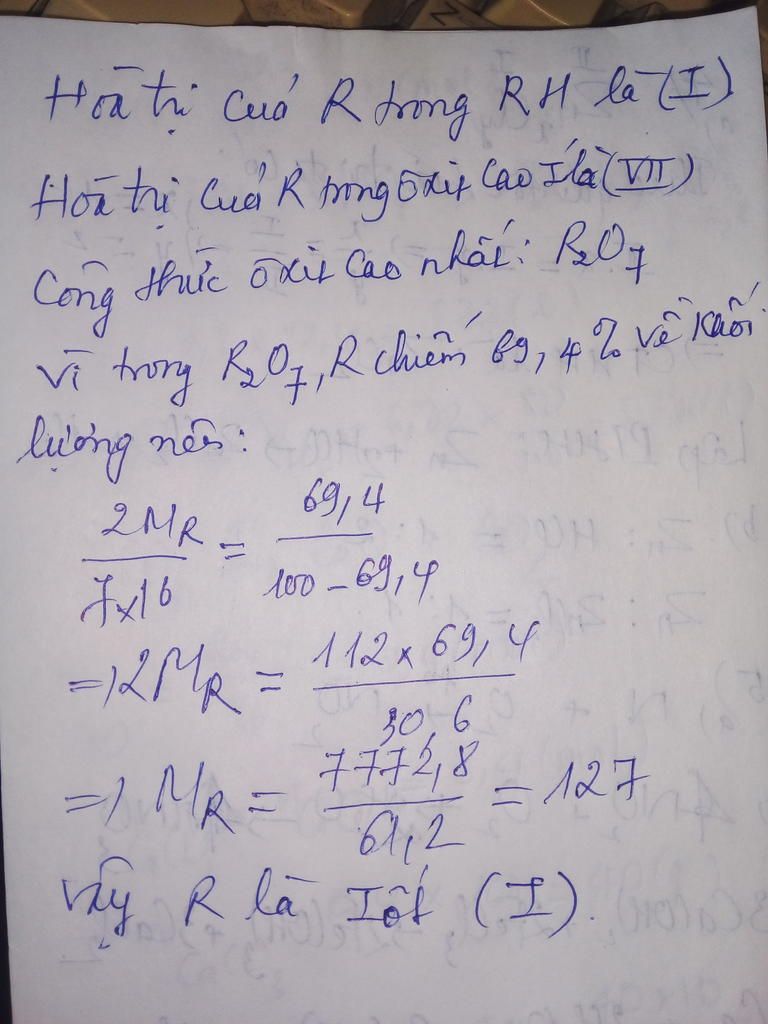 Hoá trị cuả R trong RH là (I)
Hoá trị cuả R trong ôxit cao I là (VII)
Công thức ôxit cao nhất: R₂O₇
Vì trong R₂O₇, R chiếm 69,4% về khối
lượng nên:
2M_R / 7x16 = 69,4 / 100 - 69,4
=> 2M_R = 112 x 69,4 / 30,6
=> M_R = 7772,8 / 61,2 = 127
Vậy R là Iốt (I).